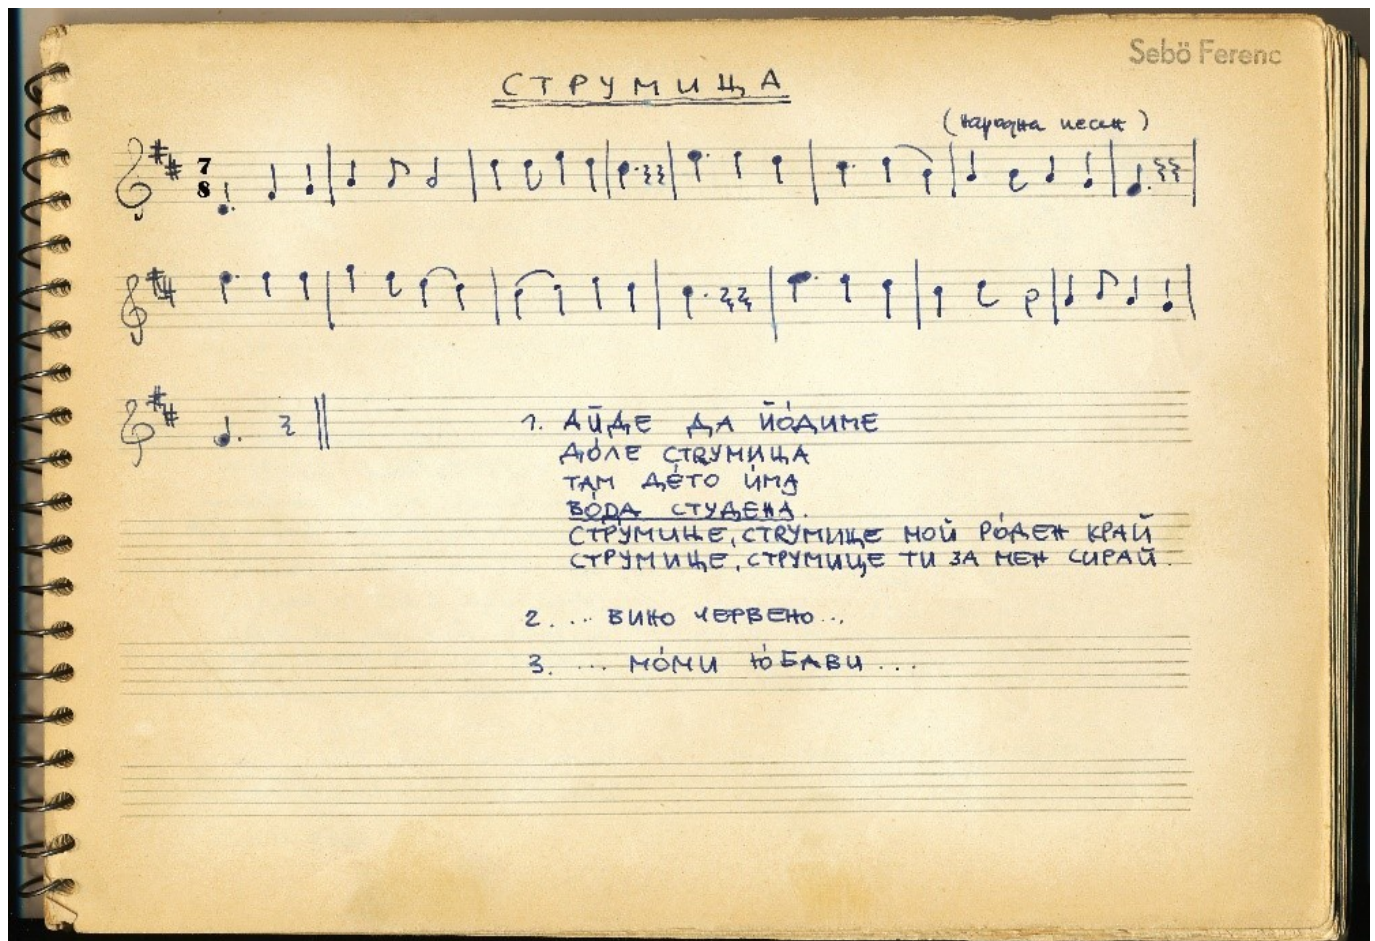 Sebö Ferenc
СТРУМИЦА
(народна песен)
7
8
1. АЙДЕ ДА ЙО́ДИМЕ
ДО́ЛЕ СТRУМИЦА
ТАМ ДЕ́ТО И́МА
ВО́ДА СТУДЕНА.
СТРУМИЦЕ, СТRУМИЦЕ МОЙ РО́ДЕН КРАЙ
СТРУМИЦЕ, СТРУМИЦЕ ТИ ЗА МЕН СИРАЙ.
2. ... ВИНО ЧЕРВЕНО...
3. ... МО́МИ Ю́БАВИ ...